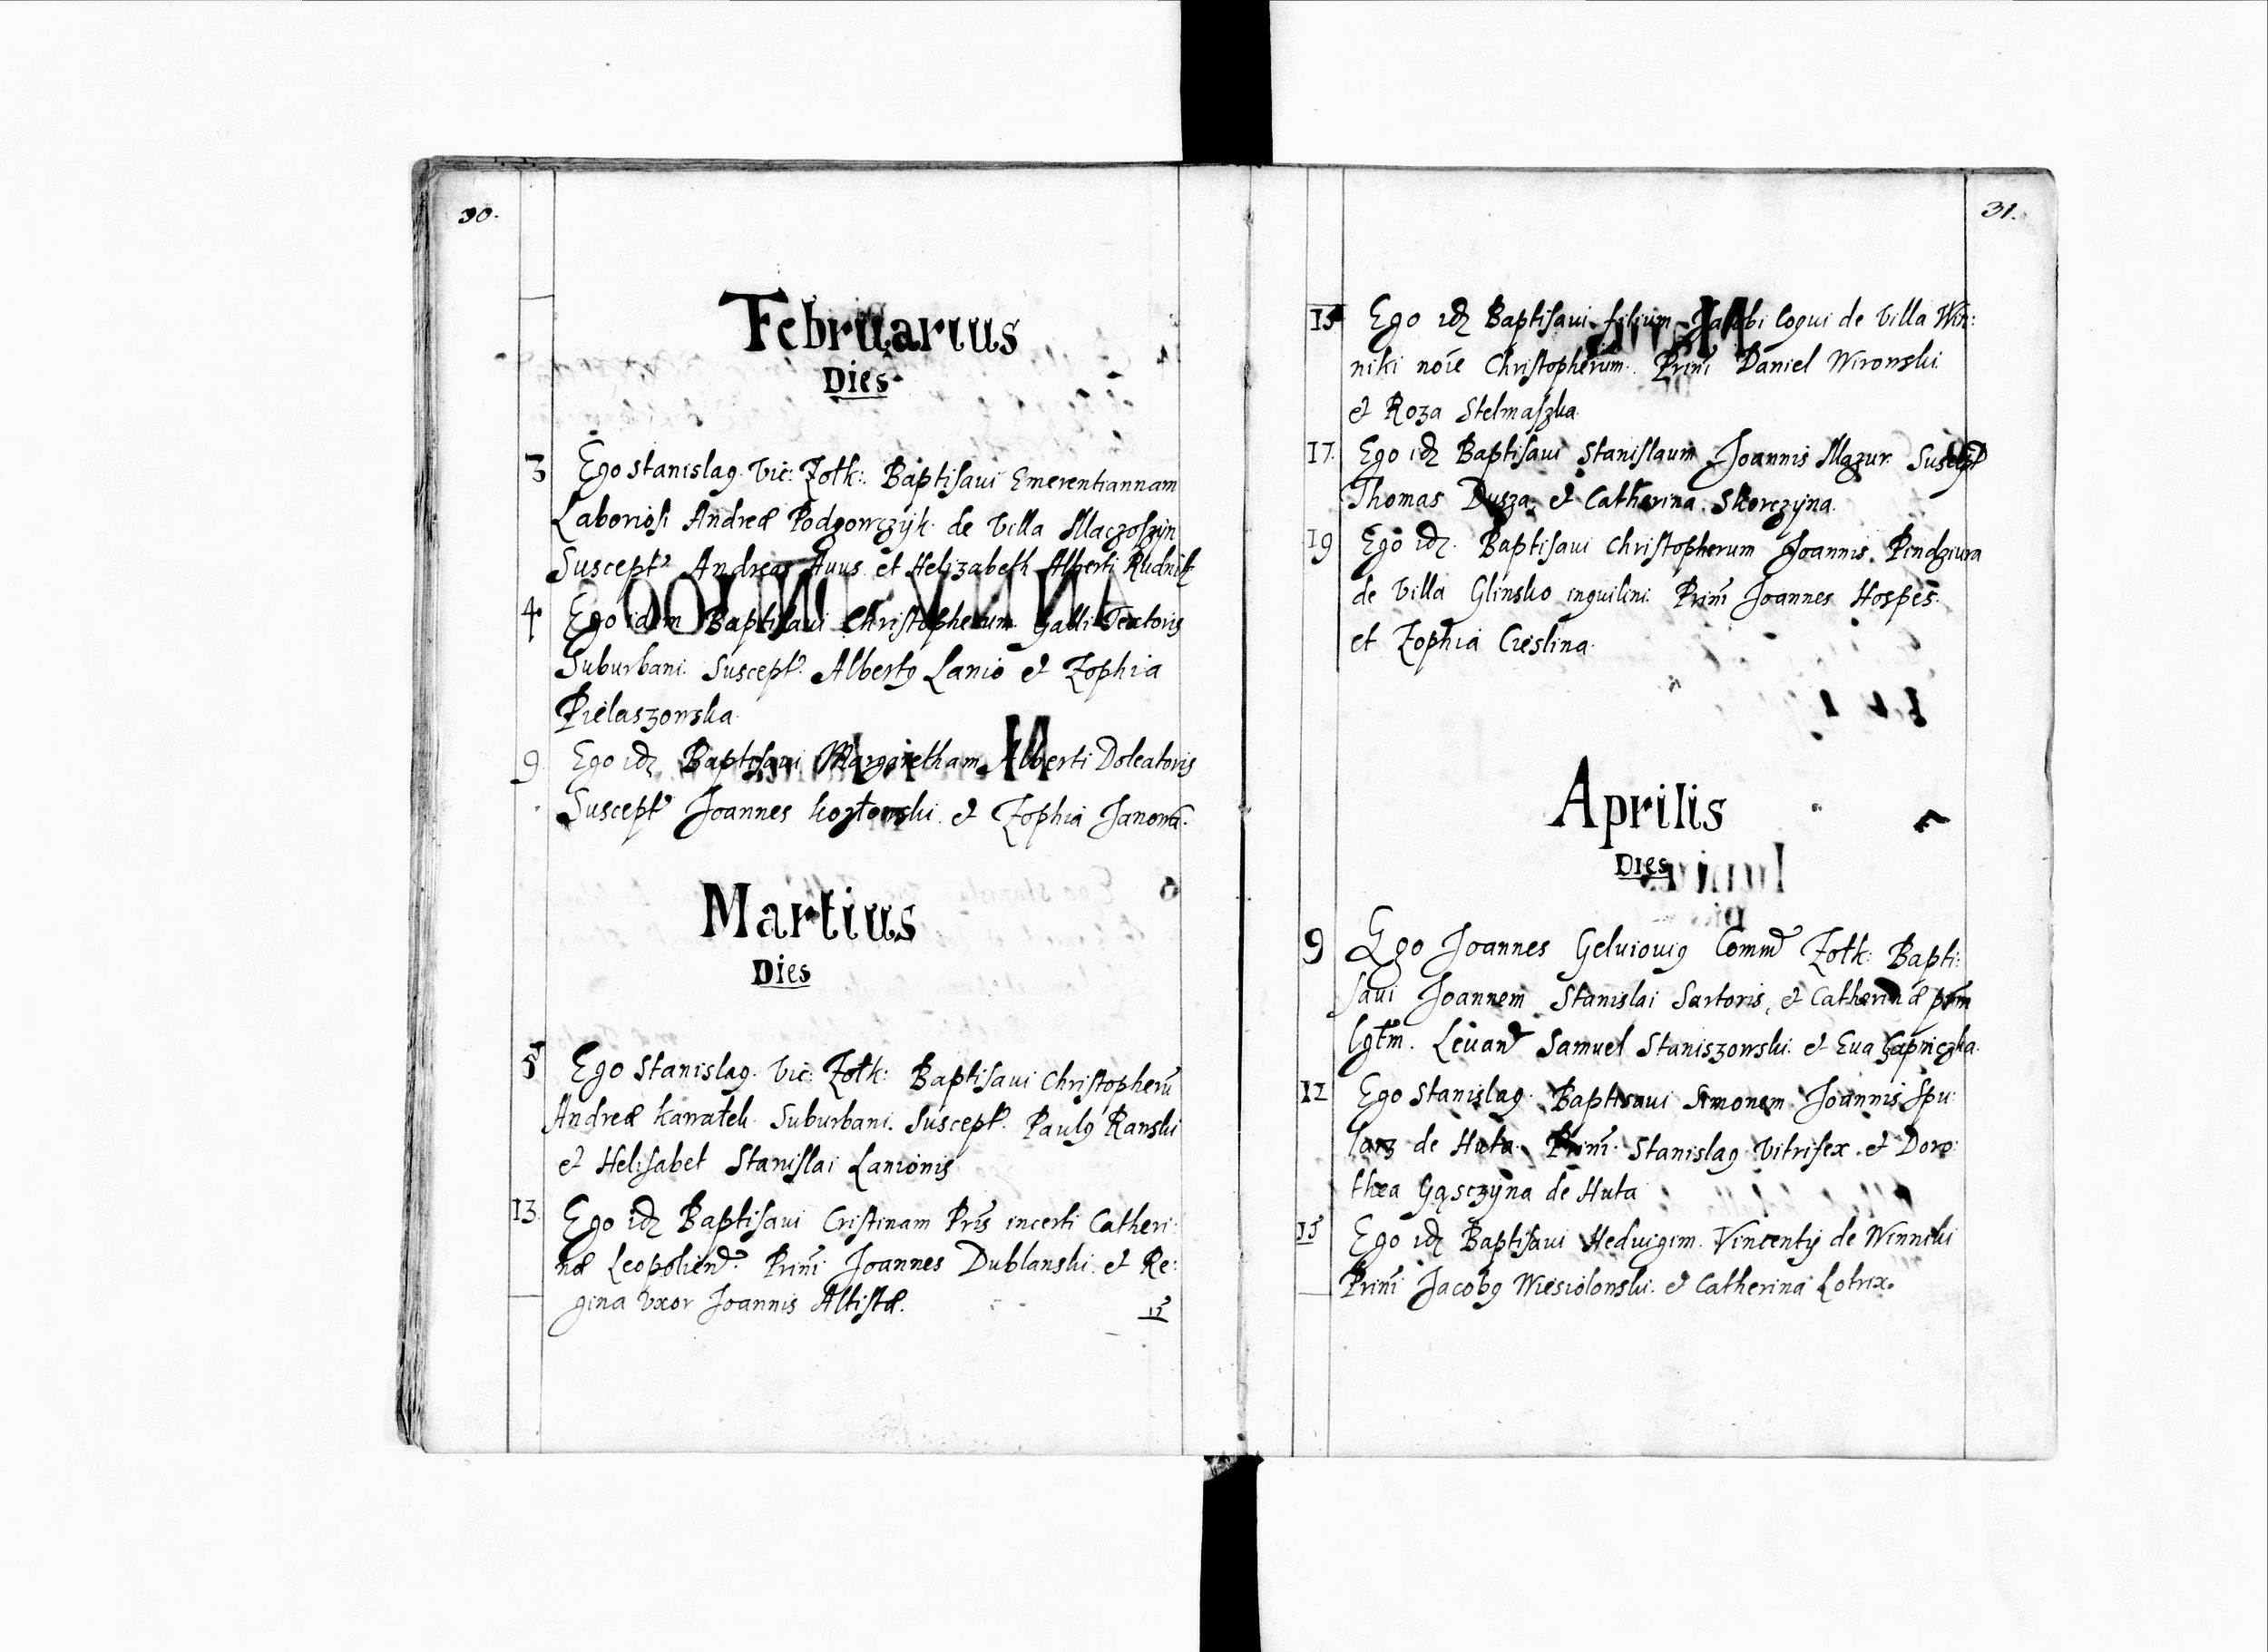 30.
Februarius
Dies
3 Ego Stanislaꝰ Vic: Żołk: Baptisaui Emerentiannam
Laboriosi Andreæ Podgorczyk de Villa Maczoszyn
Suscept. Andreas Auus et Helizabeth Alberti Rudnik
4 Ego idem Baptisaui Christopherum Galli Textoris
Suburbani. Suscept. Albertꝰ Lanio et Zophia
Pielaszowska
9 Ego idꝫ Baptisaui Margaretham Alberti Doleatoris
Suscept. Joannes Kozłowski et Zophia Janowa.
Martius
Dies
5 Ego Stanislaꝰ Vic: Żołk: Baptisaui Christopherū
Andreæ Kawałek Suburbani. Suscept. Paulꝰ Ranski
et Helisabet Stanislai Lanionis
13 Ego idꝫ Baptisaui Cristinam Pris incerti Catheri:
næ Leopolien. Prini Joannes Dublanski et Re:
gina Vxor Joannis Altistæ.
15
31.
15 Ego idꝫ Baptisaui filium Jacobi Coqui de Villa Win:
niki noie Christopherum. Prini Daniel Wironski
et Roza Stelmaszka
17 Ego idꝫ Baptisaui Stanislaum Joannis Mazur. Suscept
Thomas Dusza et Catherina Skorczyna.
19 Ego idꝫ Baptisaui Christopherum Joannis Pindziura
de Villa Glinsko inquilini Prini Joannes Hospes
et Zophia Cieslina.
Aprilis
Dies
9 Ego Joannes Commd Żołk: Bapti:
saui Joannem Stanislai Sartoris, et Catherinæ
lgtm. Leuand Samuel Staniszowski et Eua
12 Ego Stanislaꝰ Baptisaui Simonem Joannis Spu:
larz de Huta. Prini Stanislaꝰ Vitrifex et Doro:
thea Gąsczyna de Huta
15 Ego idꝫ Baptisaui Heduigim Vincentij de Winniki
Prini Jacobꝰ Wiesiolonski et Catherina Lotrix.